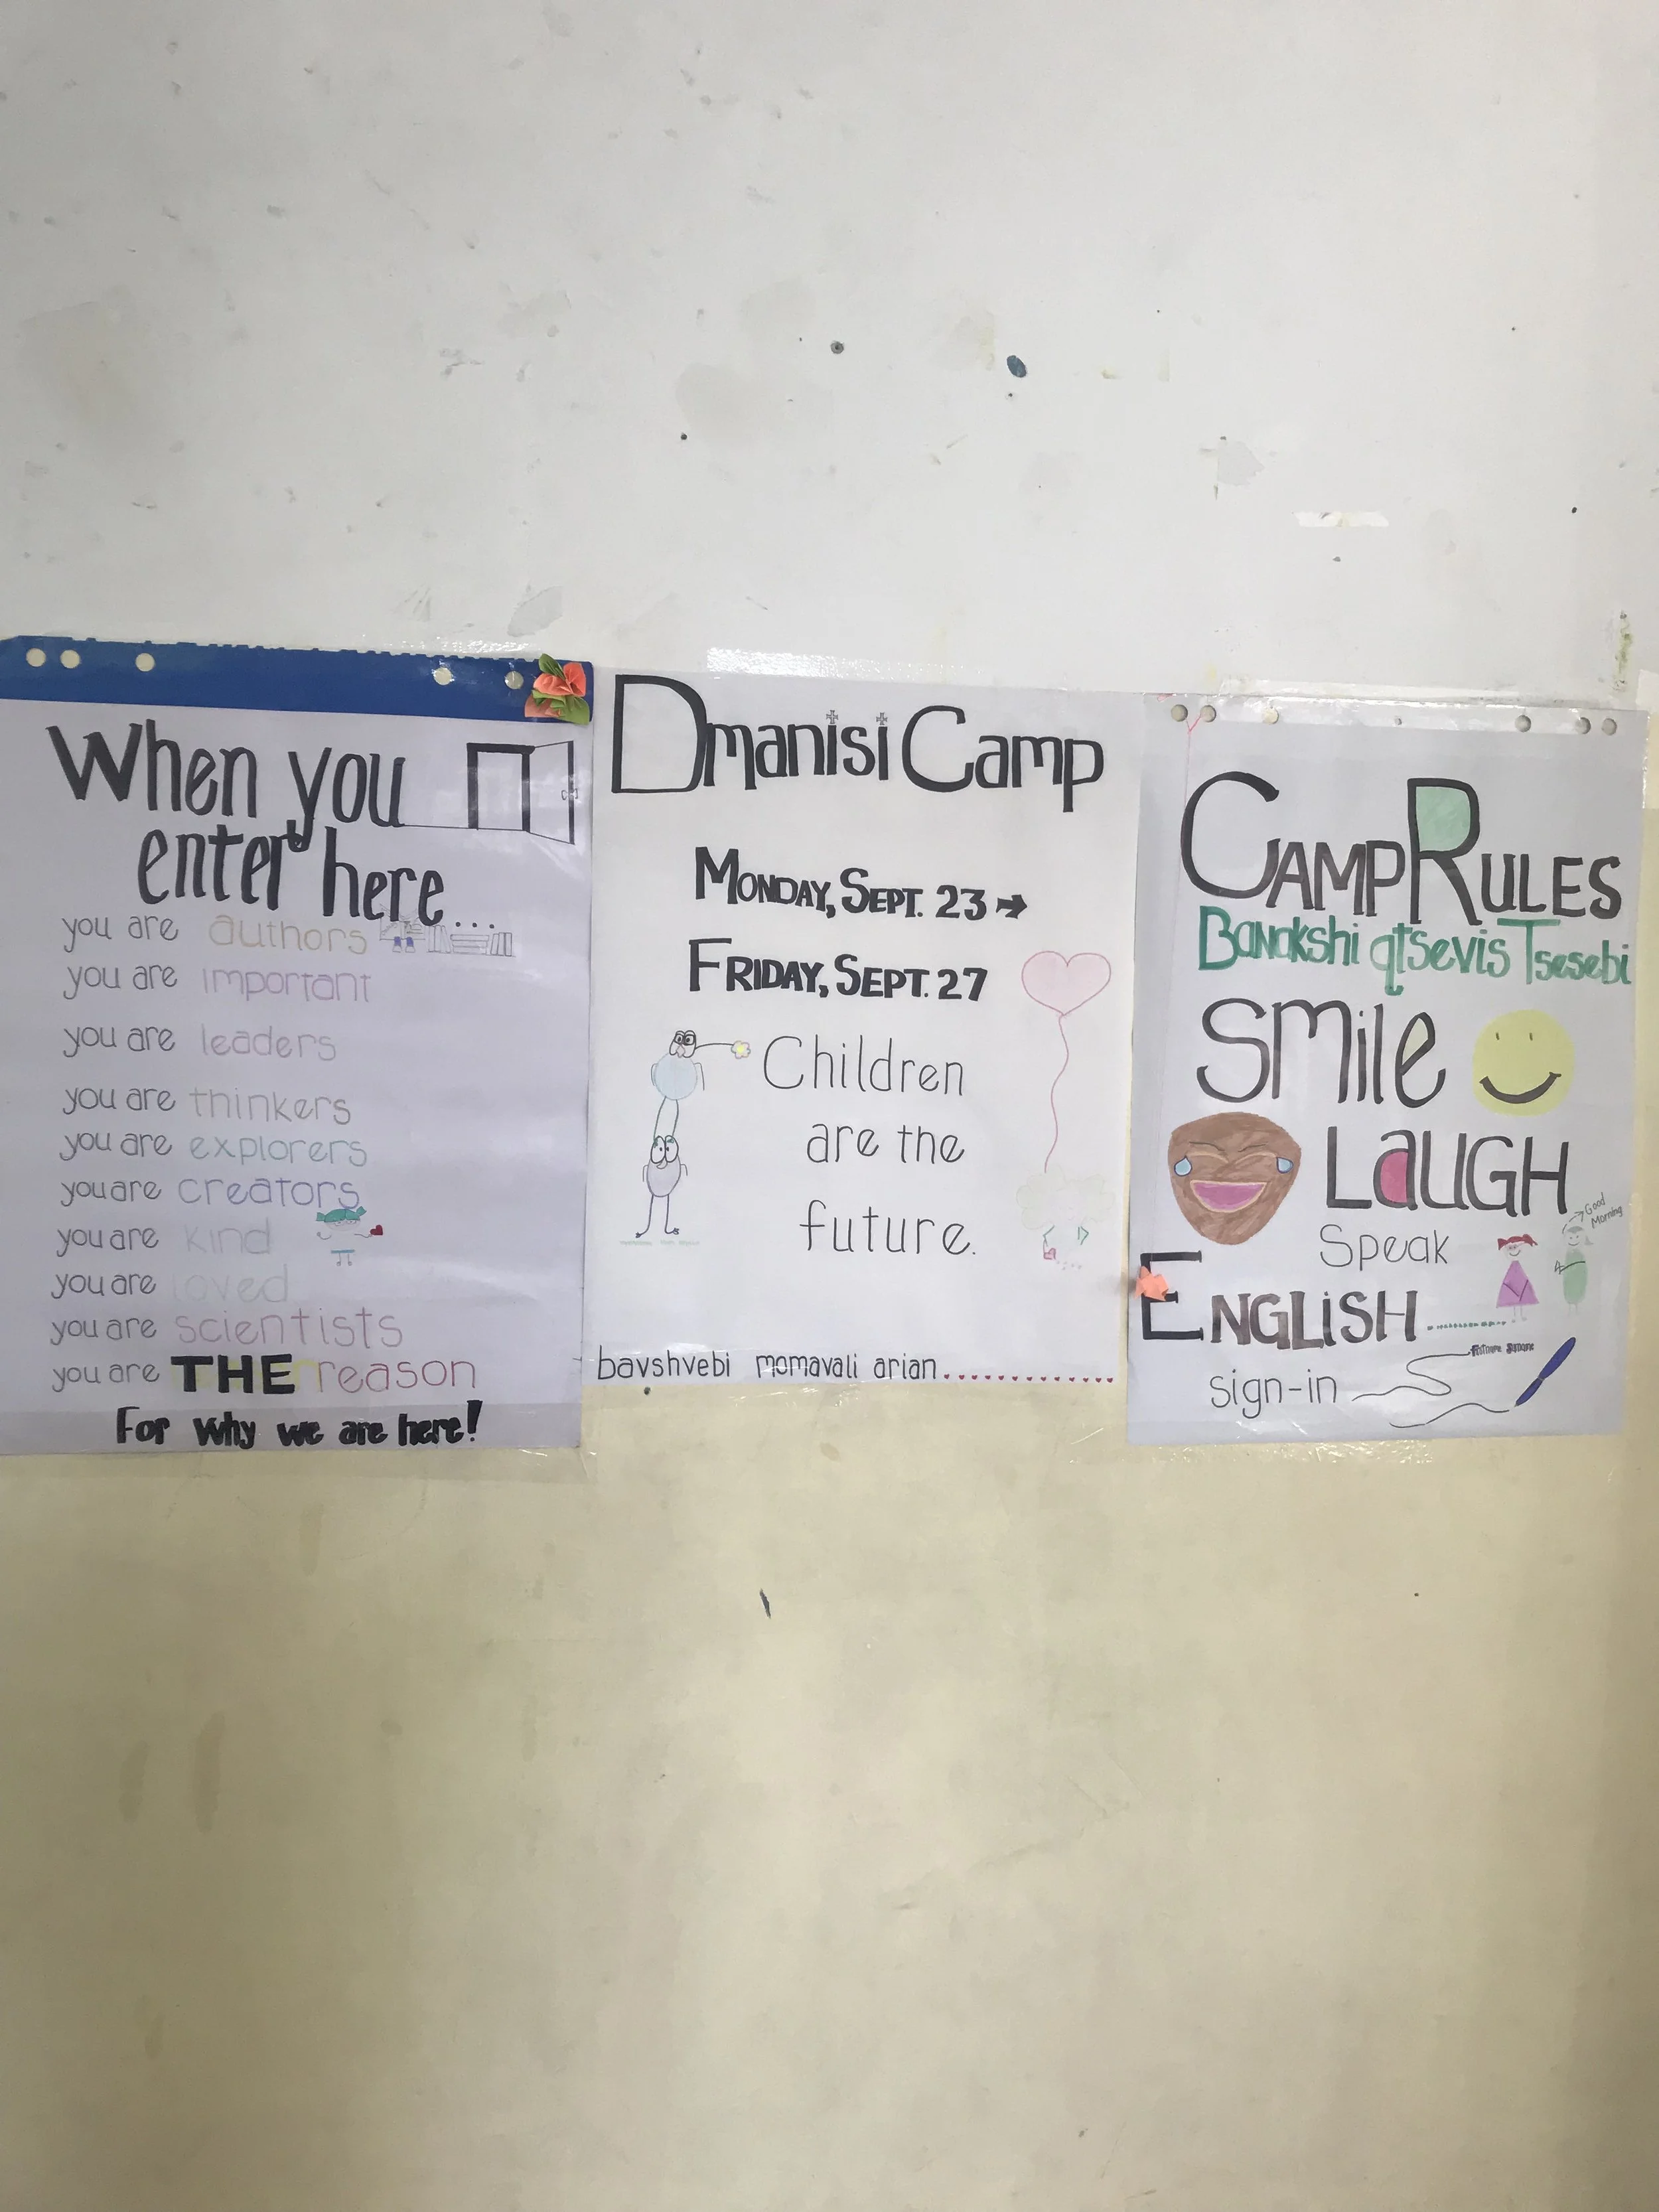 When you
enter here...
you are authors
you are important
you are leaders
you are thinkers
you are explorers
you are creators
you are kind
you are loved
you are scientists
you are THE reason
For why we are here!
Dmanisi Camp
Monday, Sept. 23 →
Friday, Sept. 27
Children
are the
future.
bavshvebi momavali arian..............
Camp Rules
Banakshi qtsevis Tsesebi
Smile
Laugh
Good
Morning
Speak
English
sign-in